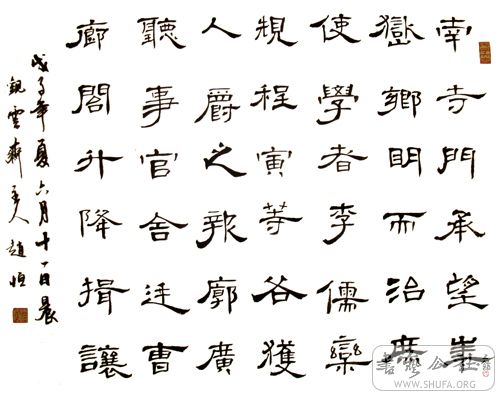 南寺門承望華
嶽鄉明而治庶
使學者李儒欒
規程寅等各獲
人爵之報廓廣
聽事官舍廷曹
廊閣升降揖讓
戊子年夏六月十一日晨
觀雲齋主人趙恒
WWW.SHUFA.ORG